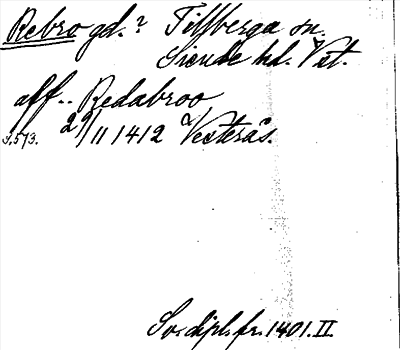 Rebro gd.? Tillberga sn.
Siende hd. Vstm.
aff.. Redabroo
s. 573. 29/11 1412 Vesterås.
Sv. dipl. fr. 1401. II.